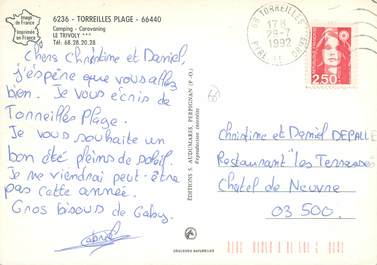 Image
de France
Imprimée
en France
6236 - TORREILLES PLAGE - 66440
Camping - Caravaning
LE TRIVOLY ***
Tél. 68.28.20.28
Chers Christine et Daniel,
j'espère que vous allez
bien. Je vous écris de
Torreilles Plage.
Je vous souhaite un
bon été pleins de soleil.
Je ne viendrai peut-être
pas cette année.
Gros bisous de Gaby.
Gabriel
EDITIONS S. AUDUMARES, PERPIGNAN (P.-O.)
Reproduction interdite
COULEURS NATURELLES
66 TORREILLES
17 H
29-7
1992
2,50
Christine et Daniel DEPALLE
Restaurant "les Terrasses
Chatel de Neuvre
03 500.